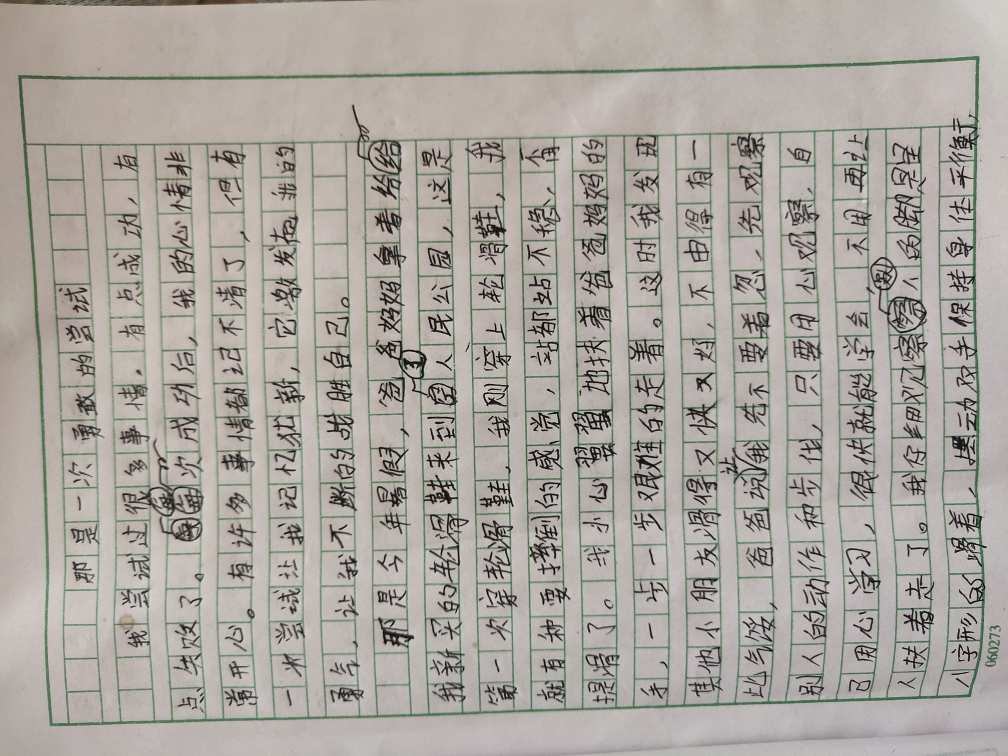 那是一次勇敢的尝试
我尝试过很多事情。有点成功，有
点失败了。每次成功后，我的心情非
常开心。有许多事情都记不清了，但有
一次尝试让我记忆犹新，它激发起我的
勇气，让我不断的战胜自己。
那是今年暑假，爸爸妈妈拿着给
我新买的轮滑鞋来到人民公园，这是
第一次穿轮滑鞋，我刚穿上轮滑鞋，我
就有种要摔倒的感觉，站都站不稳、
提滑了。我小心翼翼地扶着爸爸妈妈的
手，一步一步艰难的走着。这时我发现
其他小朋友滑得又快又好，不由得有一
比气馁，爸爸说让我先不要着忽，先观察
别人的动作和步化，只要用心观察，自
己用心学习，很快就能学会，不用再让
人扶着走了。我仔细观察，别人的脚是呈
八字形的滑着，摆动双手保持身体平衡，
060273